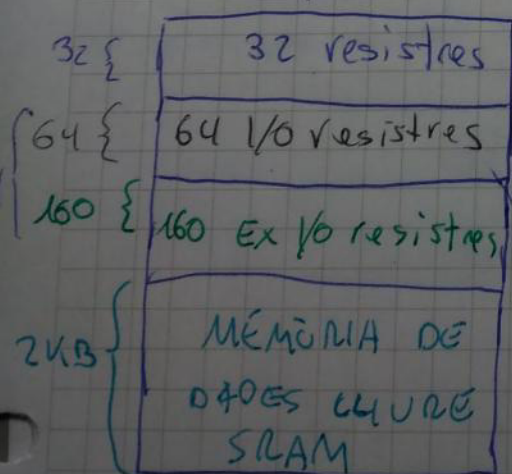 32 { 32 resistres
64 { 64 I/O resistres
160 { 160 Ex I/O resistres
2KB { MEMÒRIA DE
DADES LLIURE
SRAM